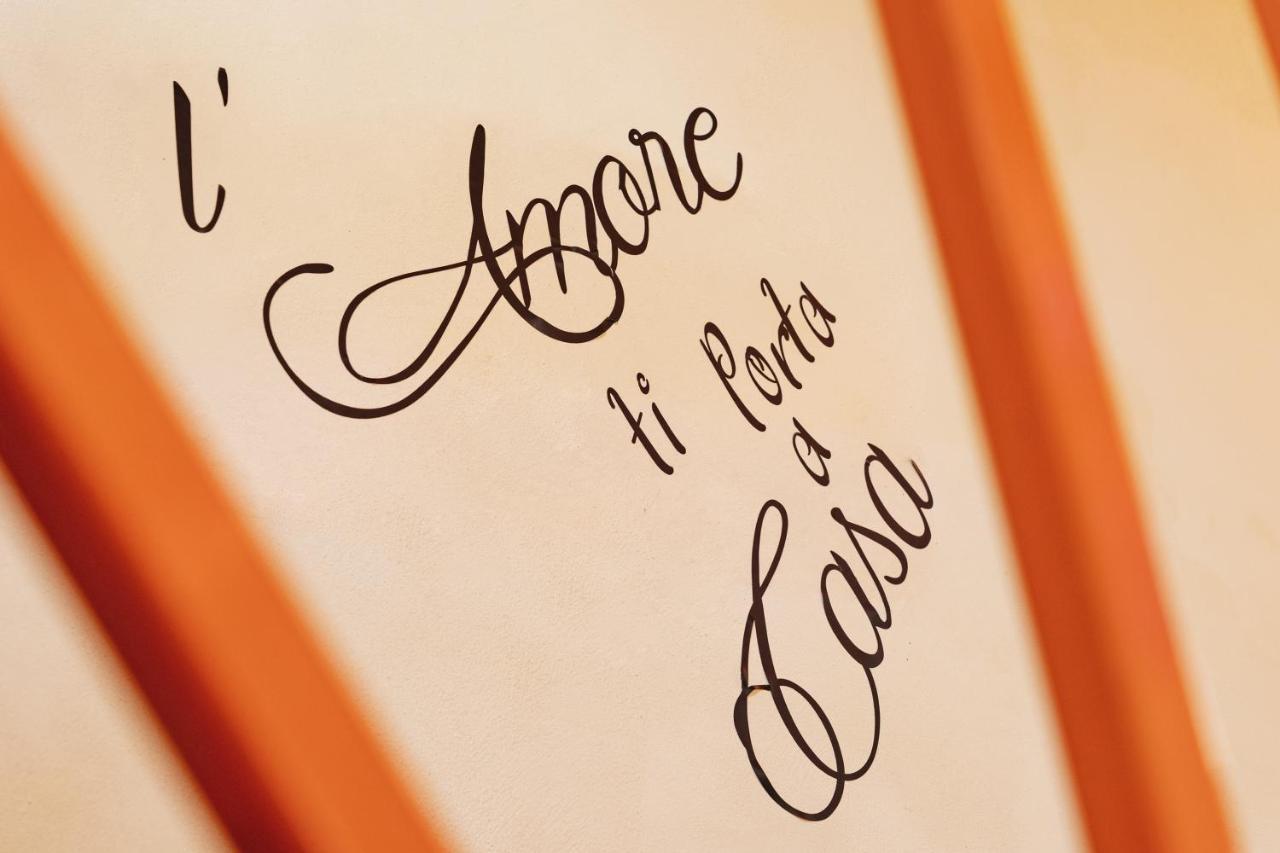 l'
Amore
ti Porta
a
Casa